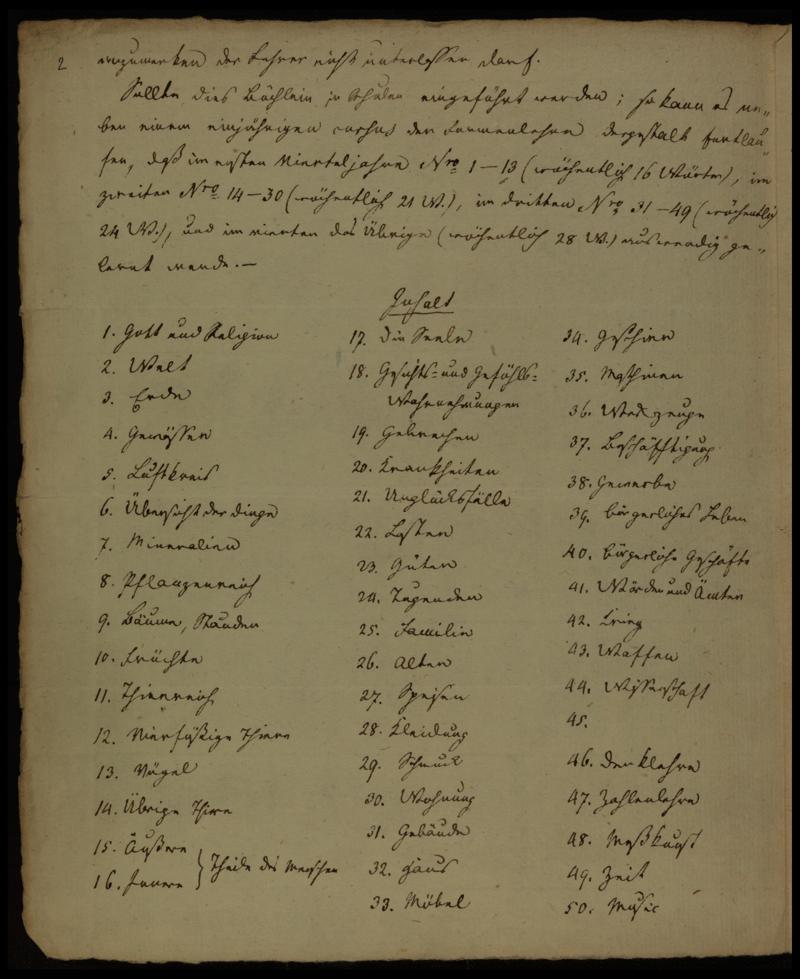 2
anzumerken der Lehrer nicht unterlassen darf.
Sollte dies Büchlein in Schulen eingeführt werden; so kann es ne„
ben einem einjährigen cursus der Formenlehre dergestalt fortlau„
fen, daß im ersten Vierteljahre Nro 1–13 (wöchentlich 16 Wörter), im
zweiten Nro 14–30 (wöchentlich 21 W.), im dritten Nro 31–49 (wöchentlich
24 W.), und im vierten das Übrige (wöchentlich 28 W.) auswendig ge„
lernt werde. —
Inhalt
1. Gott und Religion
2. Welt
3. Erde
4. Gewässer
5. Luftkreis
6. Übersicht der Dinge
7. Mineralien
8. Pflanzenreich
9. Bäume, Stauden
10. Früchte
11. Thierreich
12. Vierfüßige Thiere
13. Vögel
14. Übrige Thiere
15. Äußere
16. Innere } Theile des Menschen
17. Die Seele
18. Gesichts= und Gefühls=
Wahrnehmungen
19. Gebrechen
20. Krankheiten
21. Unglücksfälle
22. Laster
23. Güter
24. Tugenden
25. Familie
26. Alter
27. Speisen
28. Kleidung
29. Schmuck
30. Wohnung
31. Gebäude
32. Haus
33. Möbel
34. Geschirr
35. Maschinen
36. Werkzeuge
37. Beschäfftigung
38. Gewerbe
39. bürgerliches Leben
40. bürgerliche Geschäfte
41. Würden und Ämter
42. Krieg
43. Waffen
44. Wissenschaft
45.
46. Denklehre
47. Zahlenlehre
48. Meßkunst
49. Zeit
50. Music